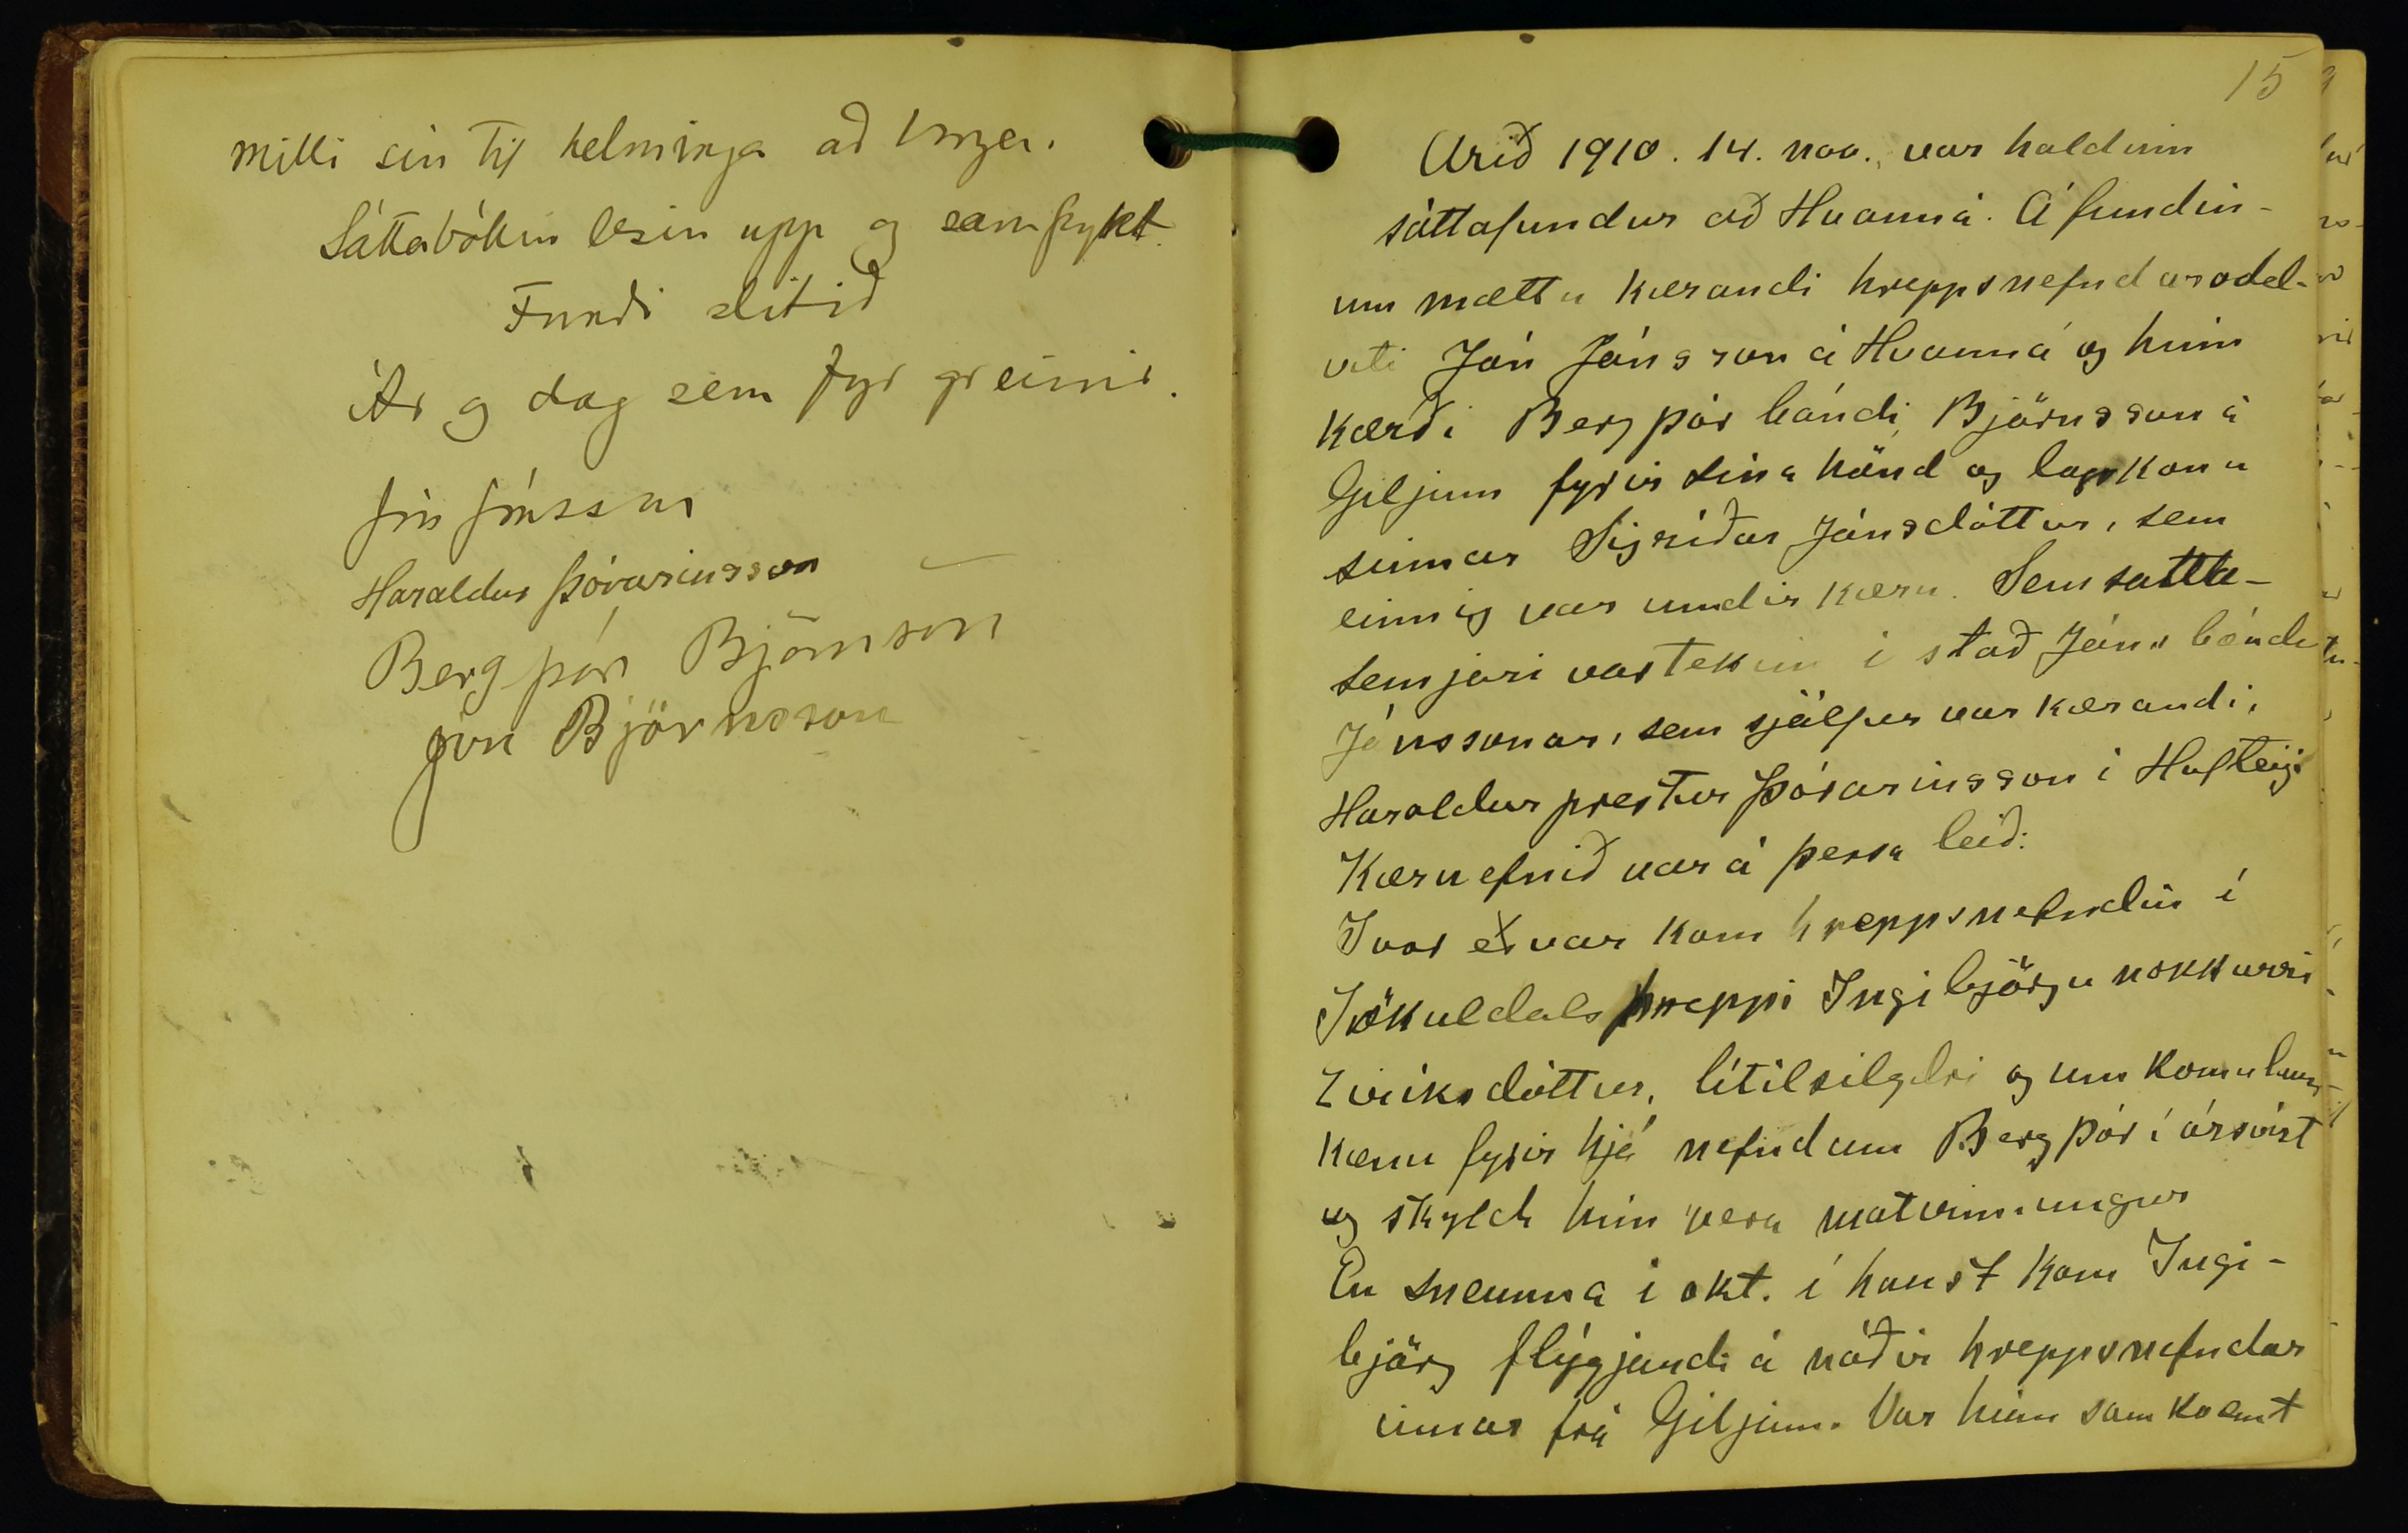 milli sín til helminga að
Sáttabókin lesin upp og samþykt.
Fundi slitið
Ár og dag sem fyr greinir.
Jón Jónsson
Haraldur Þórarinsson
Bergþór Björnsson
Jón Björnsson
15
Árið 1910. 14. nov., var haldinn
sáttafundur að Hvanná. Á fundin-
um mættu kærandi hreppsnefndarodd-
viti Jón Jónsson á Hvanná og hinn
kærði Bergþór bóndi Björnsson á
Giljum fyrir sína hönd og lagskonu
sinnar Sigríðar Jónsdóttur, sem
einnig var undir kæru. Sem sátta-
semjari var tekinn í stað Jóns bónda
Jónssonar, sem sjálfur var kærandi,
Haraldur prestur Þórarinsson í Hofteigi
Kæruefnið var á þessa leið:
Í vor er var kom hreppsnefndin í
Jökuldalshreppi Ingibjörgu nokkurri
Eiríksdóttur, lítilsigldri og umkomulaus-
kænu fyrir hjá nefndum Bergþór í ársvist
og skyldi hún vera matvinnungur
En snemma í okt. í haust kom Ingi-
björg flýgjandi á náðir hreppsnefndar
innar frá Giljum. Var hún samkvæmt